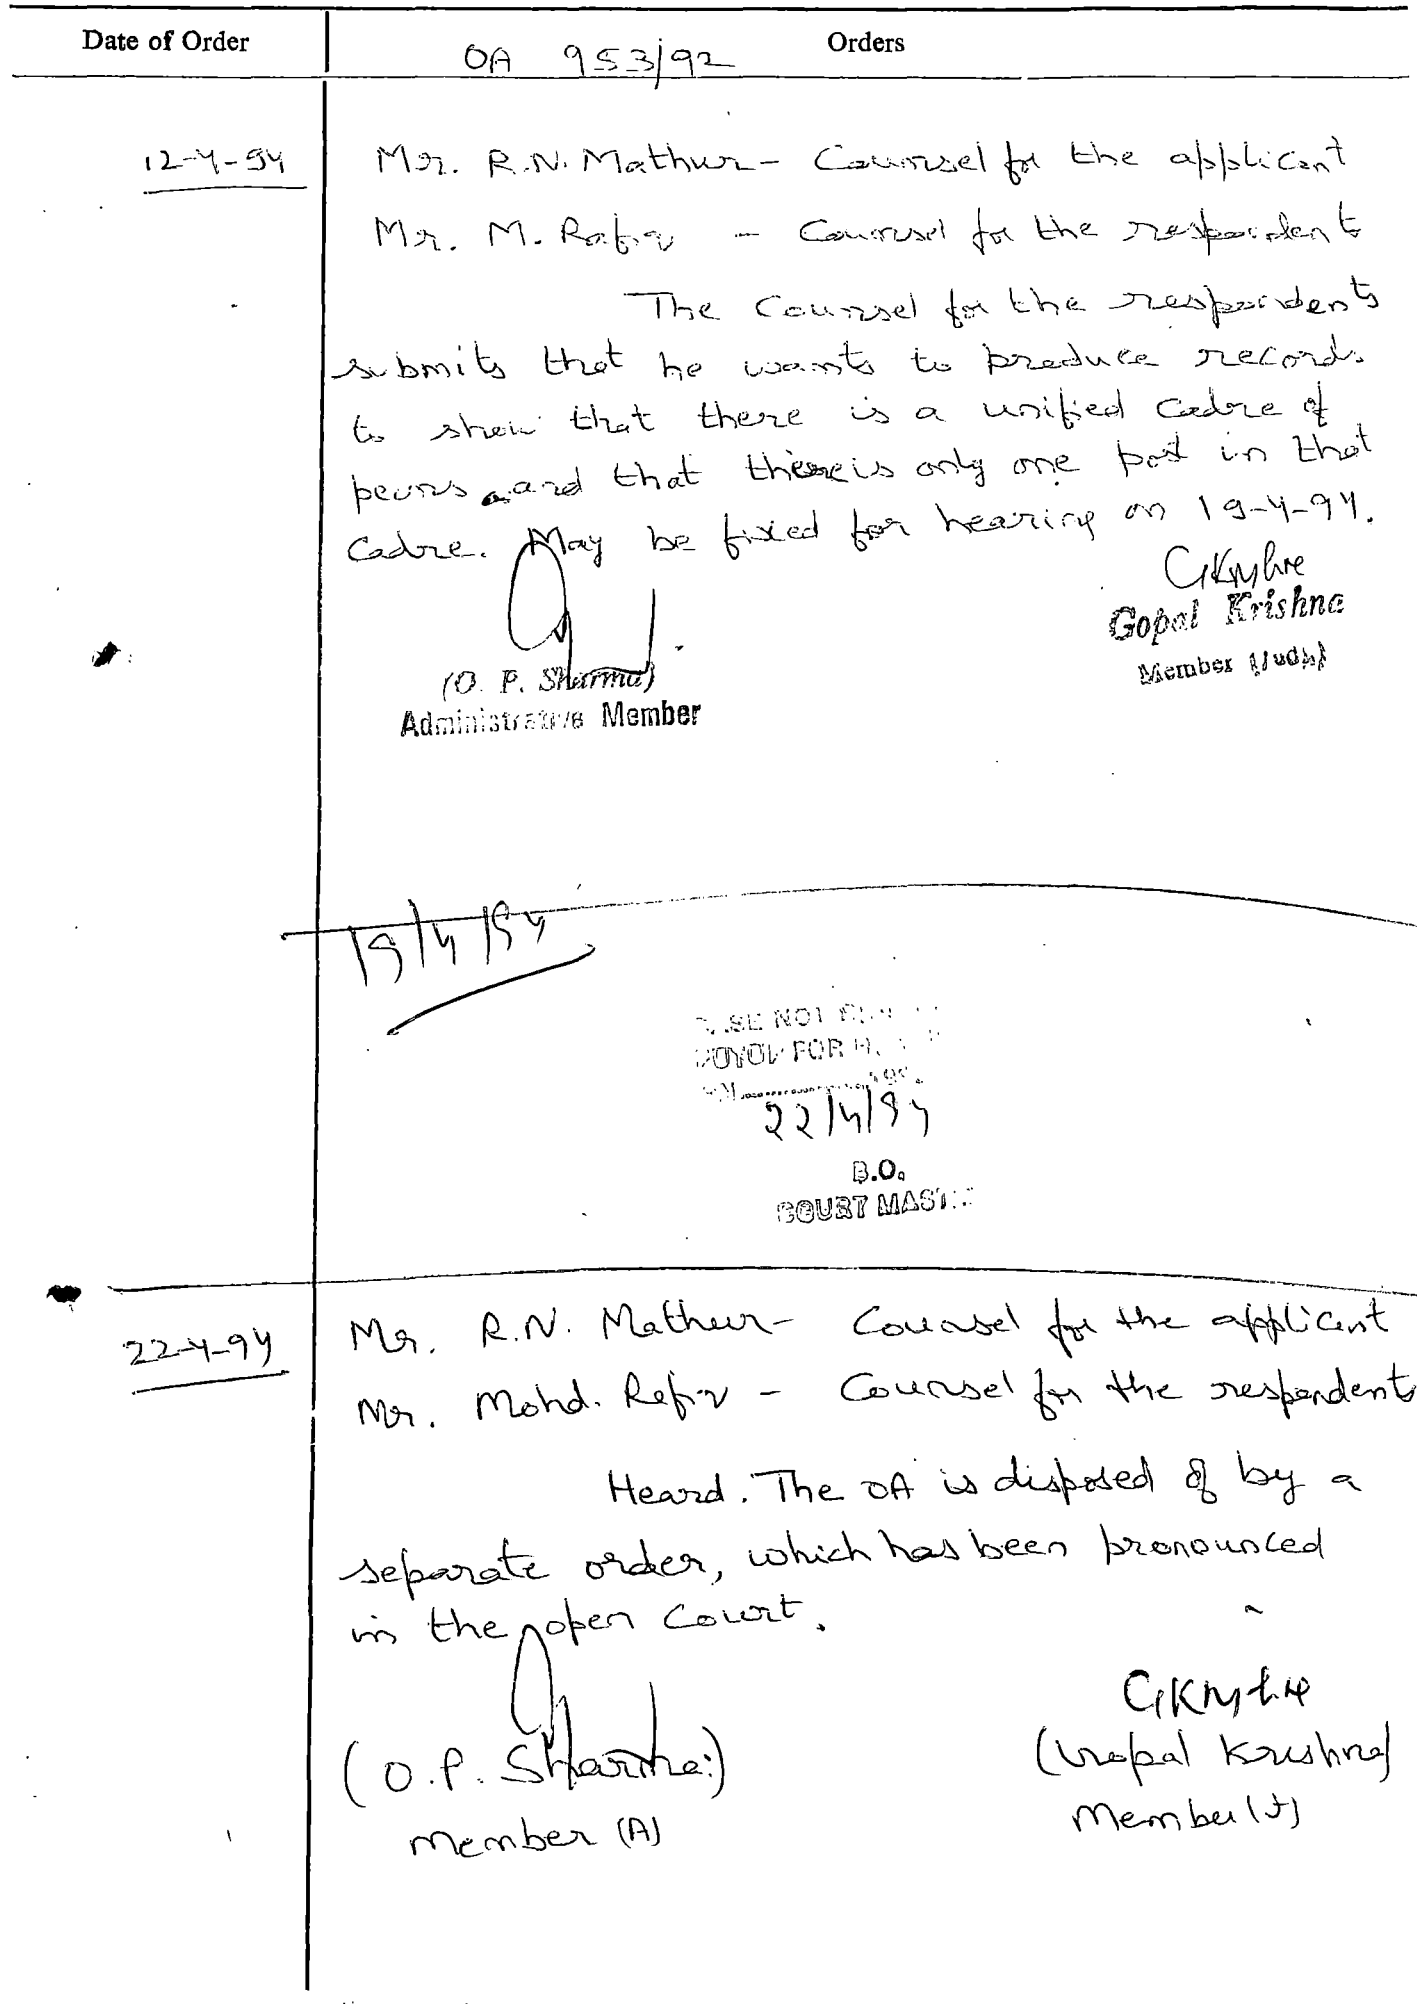 Date of Order
OA 953/92 Orders
12-4-94
Mr. R.N. Mathur - Counsel for the applicant
Mr. M. Rafiq - Counsel for the respondent
The Counsel for the respondents
submits that he wants to produce records
to show that there is a unified cadre of
peons and that there is only one post in that
Cadre. May be fixed for hearing on 19-4-94.
GKrishna
Gopal Krishna
Member (Judl)
(O. P. Sharma)
Administrative Member
19/4/94
CASE NOT
FOR
22/4/94
B.O.
COURT MASTER
22-4-94
Mr. R.N. Mathur - Counsel for the applicant
Mr. Mohd. Rafiq - Counsel for the respondents
Heard. The OA is disposed of by a
separate order, which has been pronounced
in the open Court.
GKrishna
(O.P. Sharma)
(Gopal Krishna)
Member (A)
Member (J)